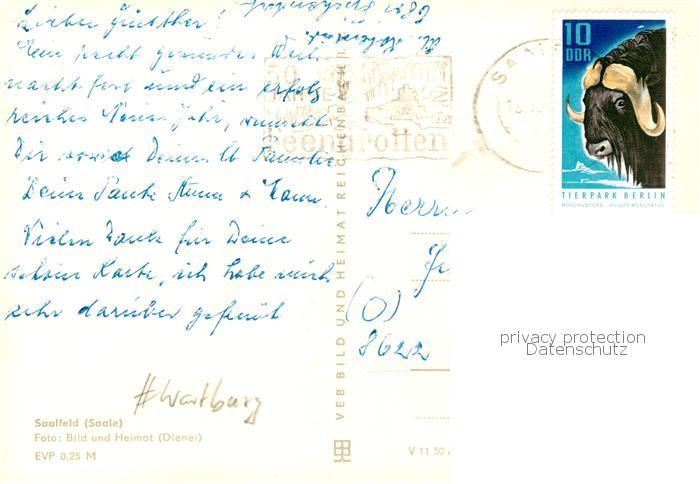 Lieben Günther!
Ein recht gesundes Weih-
nachtsfest und ein erfolg-
reiches Neues Jahr, wünscht
Dir sowie Deiner lb Familie
Deine Tante Anna &
Vielen Dank für Deine
schöne Karte, ich habe mich
sehr darüber gefreut
#Wartburg
Saalfeld (Saale)
Foto: Bild und Heimat (Diener)
EVP 0,25 M
VEB BILD UND HEIMAT REICHENBACH I.
V 11 50
Feengrotten
SA
10
DDR
TIERPARK BERLIN
MOSCHUSOCHSE · OVIBOS MOSCHATUS
Herrn
(O)
8622
privacy protection
Datenschutz